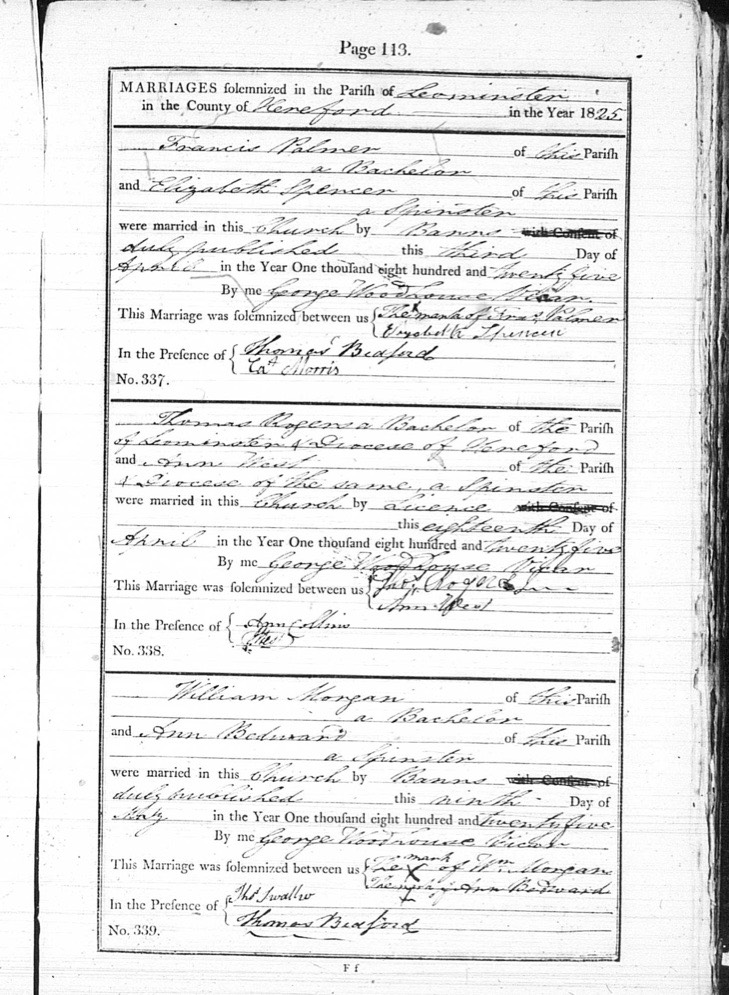 Page 113.
MARRIAGES solemnized in the Parish of Leominster
in the County of Hereford in the Year 1825.
Francis Palmer of this Parish
a Bachelor
and Elizabeth Spencer of this Parish
a Spinster
were married in this Church by Banns with Consent of
duly published this third Day of
April in the Year One thousand eight hundred and twenty five
By me George Woodhouse Vicar.
This Marriage was solemnized between us The mark of X Palmer
Elizabeth Spencer
In the Presence of Thomas Bedford
Morris
No. 337.
Thomas Rogers a Bachelor of the Parish
of Leominster & Diocese of Hereford
and Ann West of the Parish
& Diocese of the same, a Spinster
were married in this Church by Licence with Consent of
this eighteenth Day of
April in the Year One thousand eight hundred and twenty five
By me George Woodhouse Vicar
This Marriage was solemnized between us Rogers
Ann West
In the Presence of Ann Collins
No. 338.
William Morgan of this Parish
a Bachelor
and Ann Bedward of this Parish
a Spinster
were married in this Church by Banns with Consent of
duly published this ninth Day of
May in the Year One thousand eight hundred and twenty five
By me George Woodhouse Vicar
This Marriage was solemnized between us The X mark of Wm Morgan
The mark X of Ann Bedward
In the Presence of Thos Swallow
Thomas Bedford
No. 339.
F f